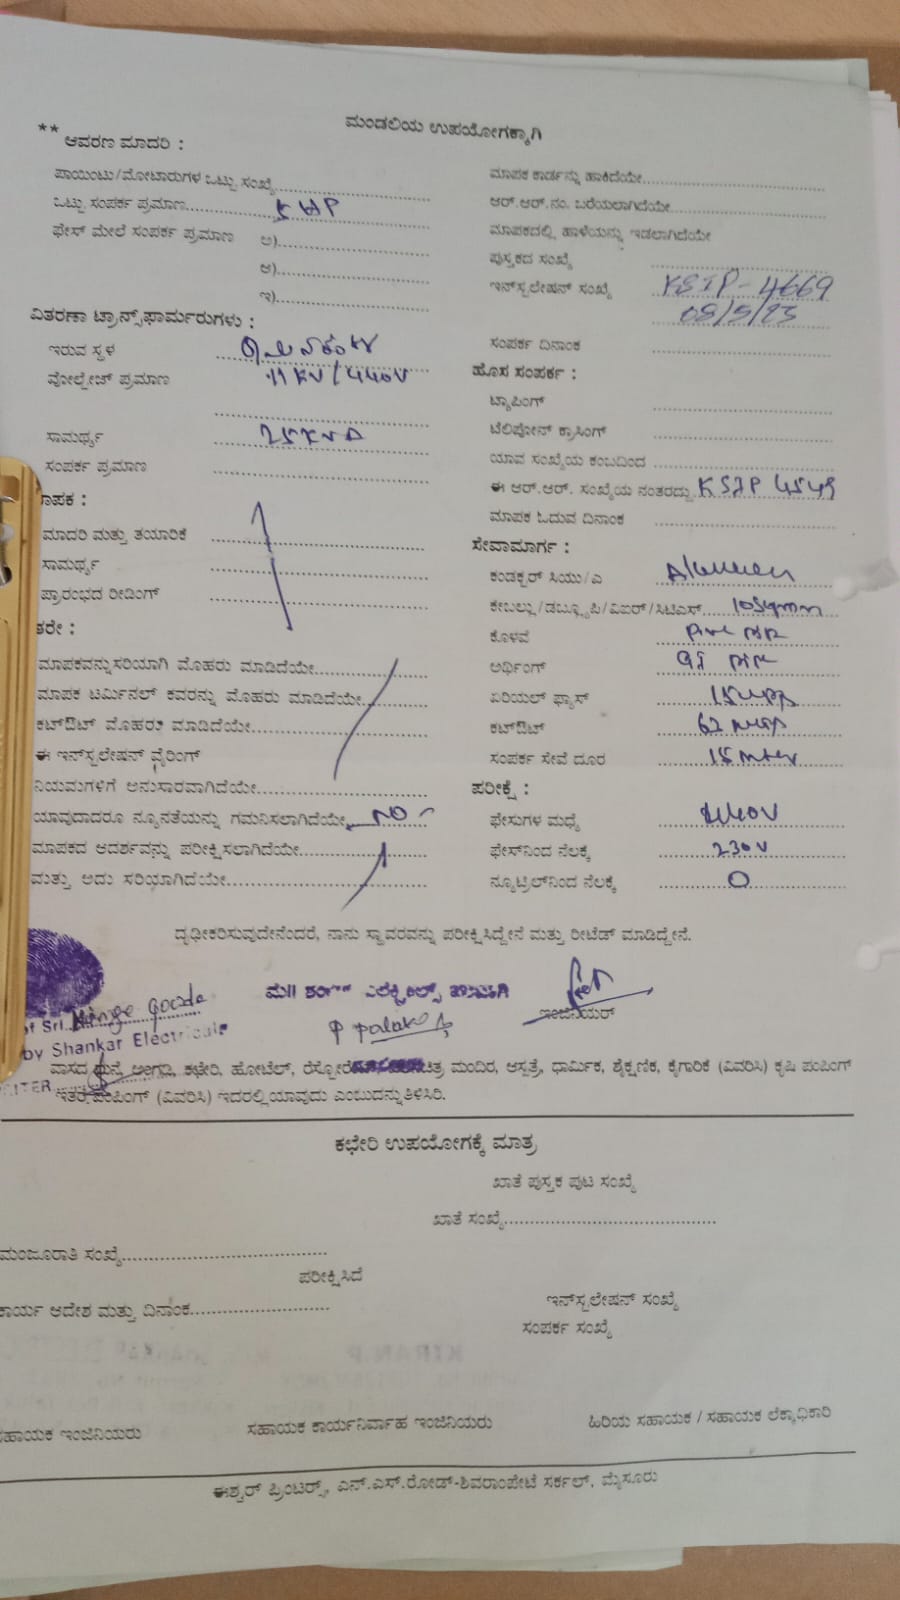 ಮಂಡಲಿಯ ಉಪಯೋಗಕ್ಕಾಗಿ
** ಆವರಣ ಮಾದರಿ :
ಪಾಯಿಂಟು/ಮೋಟಾರುಗಳ ಒಟ್ಟು ಸಂಖ್ಯೆ
ಒಟ್ಟು ಸಂಪರ್ಕ ಪ್ರಮಾಣ
ಫೇಸ್ ಮೇಲೆ ಸಂಪರ್ಕ ಪ್ರಮಾಣ ಅ)
ಆ)
ಇ)
ವಿತರಣಾ ಟ್ರಾನ್ಸ್‌ಫಾರ್ಮರುಗಳು :
ಇರುವ ಸ್ಥಳ
ವೋಲ್ಟೇಜ್ ಪ್ರಮಾಣ 11 KV/440V
ಸಾಮರ್ಥ್ಯ 25 KVA
ಸಂಪರ್ಕ ಪ್ರಮಾಣ
ಾಪಕ :
ಮಾದರಿ ಮತ್ತು ತಯಾರಿಕೆ
ಸಾಮರ್ಥ್ಯ
ಪ್ರಾರಂಭದ ರೀಡಿಂಗ್
ತರೇ :
ಮಾಪಕವನ್ನು ಸರಿಯಾಗಿ ಮೊಹರು ಮಾಡಿದೆಯೇ
ಮಾಪಕ ಟರ್ಮಿನಲ್ ಕವರನ್ನು ಮೊಹರು ಮಾಡಿದೆಯೇ
ಕಟ್‌ಔಟ್ ಮೊಹರು ಮಾಡಿದೆಯೇ
ಈ ಇನ್‌ಸ್ಟಲೇಷನ್ ವೈರಿಂಗ್
ನಿಯಮಗಳಿಗೆ ಅನುಸಾರವಾಗಿದೆಯೇ
ಯಾವುದಾದರೂ ನ್ಯೂನತೆಯನ್ನು ಗಮನಿಸಲಾಗಿದೆಯೇ NO
ಮಾಪಕದ ಆದರ್ಶವನ್ನು ಪರೀಕ್ಷಿಸಲಾಗಿದೆಯೇ
ಮತ್ತು ಅದು ಸರಿಯಾಗಿದೆಯೇ
ಮಾಪಕ ಕಾರ್ಡನ್ನು ಹಾಕಿದೆಯೇ
ಆರ್.ಆರ್.ನಂ. ಬರೆಯಲಾಗಿದೆಯೇ
ಮಾಪಕದಲ್ಲಿ ಹಾಳೆಯನ್ನು ಇಡಲಾಗಿದೆಯೇ
ಪುಸ್ತಕದ ಸಂಖ್ಯೆ
ಇನ್‌ಸ್ಟಲೇಷನ್ ಸಂಖ್ಯೆ KSIP-4669
08/5/23
ಸಂಪರ್ಕ ದಿನಾಂಕ
ಹೊಸ ಸಂಪರ್ಕ :
ಟ್ಯಾಪಿಂಗ್
ಟೆಲಿಪೋನ್ ಕ್ರಾಸಿಂಗ್
ಯಾವ ಸಂಖ್ಯೆಯ ಕಂಬದಿಂದ
ಈ ಆರ್.ಆರ್. ಸಂಖ್ಯೆಯ ನಂತರದ್ದು KSIP 4549
ಮಾಪಕ ಓದುವ ದಿನಾಂಕ
ಸೇವಾಮಾರ್ಗ :
ಕಂಡಕ್ಟರ್ ಸಿಯು/ಎ
ಕೇಬಲ್ಲು/ಡಬ್ಲ್ಯೂಪಿ/ವಿಐರ್/ಸಿಟಿಎಸ್ 10sqmm
ಕೊಳವೆ
ಅರ್ಥಿಂಗ್ GI
ಏರಿಯಲ್ ಫ್ಯೂಸ್
ಕಟ್‌ಔಟ್
ಸಂಪರ್ಕ ಸೇವೆ ದೂರ 15 mter
ಪರೀಕ್ಷೆ :
ಫೇಸುಗಳ ಮಧ್ಯೆ 440V
ಫೇಸ್‌ನಿಂದ ನೆಲಕ್ಕೆ 230V
ನ್ಯೂಟ್ರಲ್‌ನಿಂದ ನೆಲಕ್ಕೆ 0
ದೃಢೀಕರಿಸುವುದೇನೆಂದರೆ, ನಾನು ಸ್ಥಾವರವನ್ನು ಪರೀಕ್ಷಿಸಿದ್ದೇನೆ ಮತ್ತು ರೀಟೆಡ್ ಮಾಡಿದ್ದೇನೆ.
of Sri. Ninge Gowda
by Shankar Electricals
ಇಂಜಿನಿಯರ್
ವಾಸದ ಮನೆ, ಅಂಗಡಿ, ಕಛೇರಿ, ಹೋಟೆಲ್, ಚಿತ್ರ ಮಂದಿರ, ಆಸ್ಪತ್ರೆ, ಧಾರ್ಮಿಕ, ಶೈಕ್ಷಣಿಕ, ಕೈಗಾರಿಕೆ (ವಿವರಿಸಿ) ಕೃಷಿ ಪಂಪಿಂಗ್
ಇತರೆ ಪಂಪಿಂಗ್ (ವಿವರಿಸಿ) ಇದರಲ್ಲಿ ಯಾವುದು ಎಂಬುದನ್ನು ತಿಳಿಸಿರಿ.
ಕಛೇರಿ ಉಪಯೋಗಕ್ಕೆ ಮಾತ್ರ
ಖಾತೆ ಪುಸ್ತಕ ಪುಟ ಸಂಖ್ಯೆ
ಖಾತೆ ಸಂಖ್ಯೆ
ಮಂಜೂರಾತಿ ಸಂಖ್ಯೆ
ಪರೀಕ್ಷಿಸಿದೆ
ಕಾರ್ಯ ಆದೇಶ ಮತ್ತು ದಿನಾಂಕ
ಇನ್‌ಸ್ಟಲೇಷನ್ ಸಂಖ್ಯೆ
ಸಂಪರ್ಕ ಸಂಖ್ಯೆ
ಸಹಾಯಕ ಇಂಜಿನಿಯರು ಸಹಾಯಕ ಕಾರ್ಯನಿರ್ವಾಹ ಇಂಜಿನಿಯರು ಹಿರಿಯ ಸಹಾಯಕ / ಸಹಾಯಕ ಲೆಕ್ಕಾಧಿಕಾರಿ
ಈಶ್ವರ್ ಪ್ರಿಂಟರ್ಸ್, ಎನ್.ಎಸ್.ರೋಡ್-ಶಿವರಾಂಪೇಟೆ ಸರ್ಕಲ್, ಮೈಸೂರು